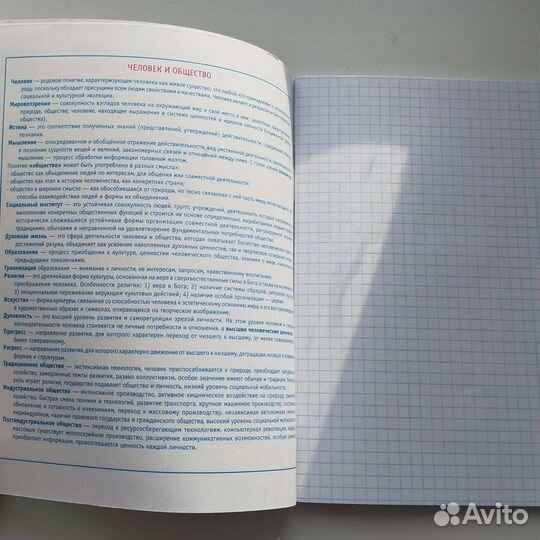 ЧЕЛОВЕК И ОБЩЕСТВО
Человек — родовое понятие, характеризующее человека как живое существо; это любой, кто принадлежит к
роду, поскольку обладает присущими всем людям свойствами и качествами. Человек является результатом
социальной и культурной эволюции.
Мировоззрение — совокупность взглядов человека на окружающий мир и свое место в нём; целостное
природе, обществе, человеке, находящее выражение в системе ценностей и идеалов личности
общества).
Истина — это соответствие полученных знаний (представлений, утверждений) действительности,
познания.
Мышление — опосредованное и обобщённое отражение действительности, вид умственной деятельности,
в познании сущности вещей и явлений, закономерных связей и отношений между ними. С точки зрения
мышление — процесс обработки информации головным мозгом.
Понятие «общество» может быть употреблено в разных смыслах:
- общество как объединение людей по интересам, для общения или совместной деятельности;
- общество как этап в истории человечества, как конкретная страна;
- общество в широком смысле — как обособившаяся от природы, но тесно связанная с ней часть мира,
способы взаимодействия людей и формы их объединения.
Социальный институт — это устойчивая совокупность людей, групп, учреждений, деятельность которых
выполнение конкретных общественных функций и строится на основе определенных,
исторически сложившиеся устойчивые формы организации совместной деятельности, регулируемые
традициями, обычаями и направленные на удовлетворение фундаментальных потребностей общества.
Духовная жизнь — это сфера деятельности человека и общества, которая охватывает богатство человеческих
достижений разума, объединяет как усвоение накопленных духовных ценностей, так и творческое создание
Образование — процесс приобщения к культуре, ценностям человеческого общества, знаниям о мире,
предыдущими поколениями.
Гуманизация образования — внимание к личности, ее интересам, запросам, нравственному воспитанию.
Религия — это древнейшая форма культуры, основанная на вере в сверхъестественные силы, в Бога, а также на
преображения человека. Особенности религии: 1) вера в Бога; 2) наличие системы обрядов, ритуалов,
3) эмоциональное переживание верующим культовых действий; 4) наличие особой организации — церкви.
Искусство — форма культуры, связанная со способностью человека к эстетическому освоению мира,
в художественных образах и символах, опирающихся на творческое воображение.
Духовность — это высший уровень развития и саморегуляции зрелой личности. На этом уровне мотивом и
жизнедеятельности человека становятся не личные потребности и отношения, а высшие человеческие ценности
Прогресс — направление развития, для которого характерен переход от низшего к высшему, от менее
более совершенному.
Регресс — направление развития, для которого характерно движение от высшего к низшему, деградация, возврат к
формам и структурам.
Традиционное общество — экстенсивная технология, человек приспосабливается к природе, преобладает
хозяйство, замедленные темпы развития, развит коллективизм, особое значение имеют обычаи и традиции,
роль играет религия, государство подавляет общество и личность, низкий уровень социальной мобильности.
Индустриальное общество — интенсивное производство, активное хищническое воздействие на природу,
хозяйство, быстрая смена техники и технологий, развитие транспорта, крупное машинное производство,
обновление и готовность к изменениям, переход к массовому производству, независимая автономная
индивидуализм, наличие правового государства и гражданского общества, высокий уровень социальной
Постиндустриальное общество — переход к ресурсосберегающим технологиям, компьютерная революция,
массовым существует мелкосерийное производство, расширение коммуникативных возможностей, особую
приобретает информация, провозглашается ценность каждой личности.
Avito